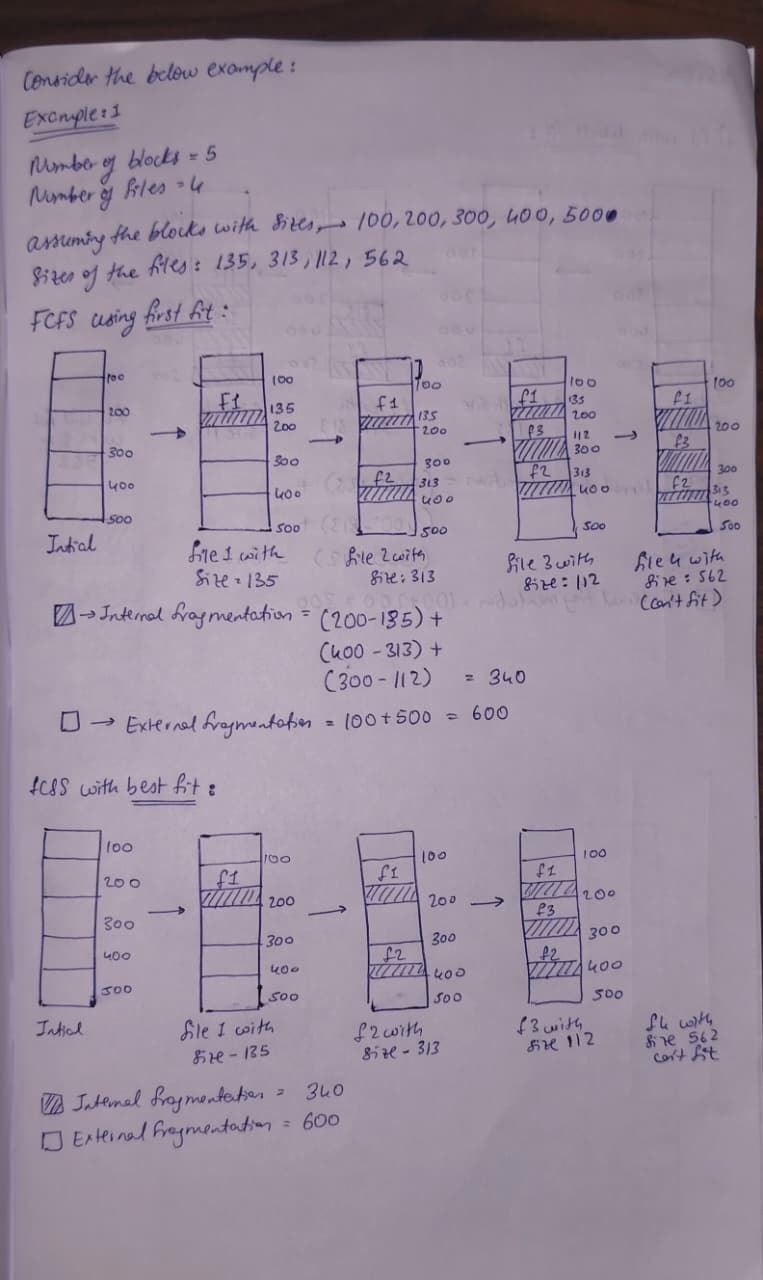 Consider the below example:
Example:1
Number of blocks = 5
Number of files = 4
assuming the blocks with sizes → 100, 200, 300, 400, 500
Sizes of the files: 135, 313, 112, 562
FCFS using first fit:
100
200
300
400
500
Intial
f1
100
135
200
300
400
500
file 1 with
size = 135
f1
f2
100
135
200
300
313
400
500
file 2 with
size: 313
f1
f3
f2
100
135
200
112
300
313
400
500
file 3 with
size: 112
f1
f3
f2
100
200
300
313
400
500
file 4 with
size: 562
(can't fit)
→ Internal fragmentation = (200-135) +
(400-313) +
(300-112) = 340
→ External fragmentation = 100+500 = 600
fCSS with best fit:
100
200
300
400
500
Intial
f1
100
200
300
400
500
file 1 with
size - 135
f1
f2
100
200
300
400
500
f2 with
size - 313
f1
f3
f2
100
200
300
400
500
f3 with
size 112
f4 with
size 562
can't fit
Internal fragmentation = 340
External fragmentation = 600